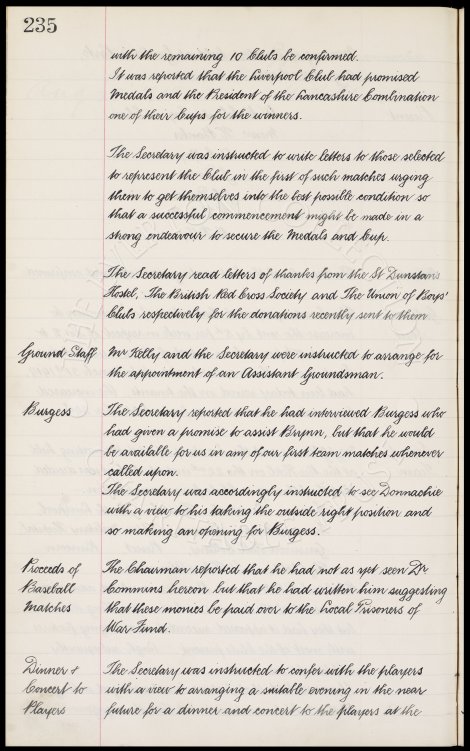 235
with the remaining 10 Clubs be confirmed.
It was reported that the Liverpool Club had promised
Medals and the President of the Lancashire Combination
one of their Cups for the winners.
The Secretary was instructed to write letters to those selected
to represent the Club in the first of such matches urging
them to get themselves into the best possible condition so
that a successful commencement might be made in a
strong endeavour to secure the Medals and Cup.
The Secretary read letters of thanks from the St Dunstan's
Hostel, The British Red Cross Society and The Union of Boys'
Clubs respectively for the donations recently sent to them
Ground Staff Mr Kelly and the Secretary were instructed to arrange for
the appointment of an Assistant Groundsman.
Burgess The Secretary reported that he had interviewed Burgess who
had given a promise to assist Brynn, but that he would
be available for us in any of our first team matches whenever
called upon.
The Secretary was accordingly instructed to see Donnachie
with a view to his taking the outside right position and
so making an opening for Burgess.
Proceeds of The Chairman reported that he had not as yet seen Dr
Baseball Commins hereon but that he had written him suggesting
Matches that these monies be paid over to the Local Prisoners of
War Fund.
Dinner & The Secretary was instructed to confer with the players
Concert to with a view to arranging a suitable evening in the near
Players future for a dinner and concert to the players at the